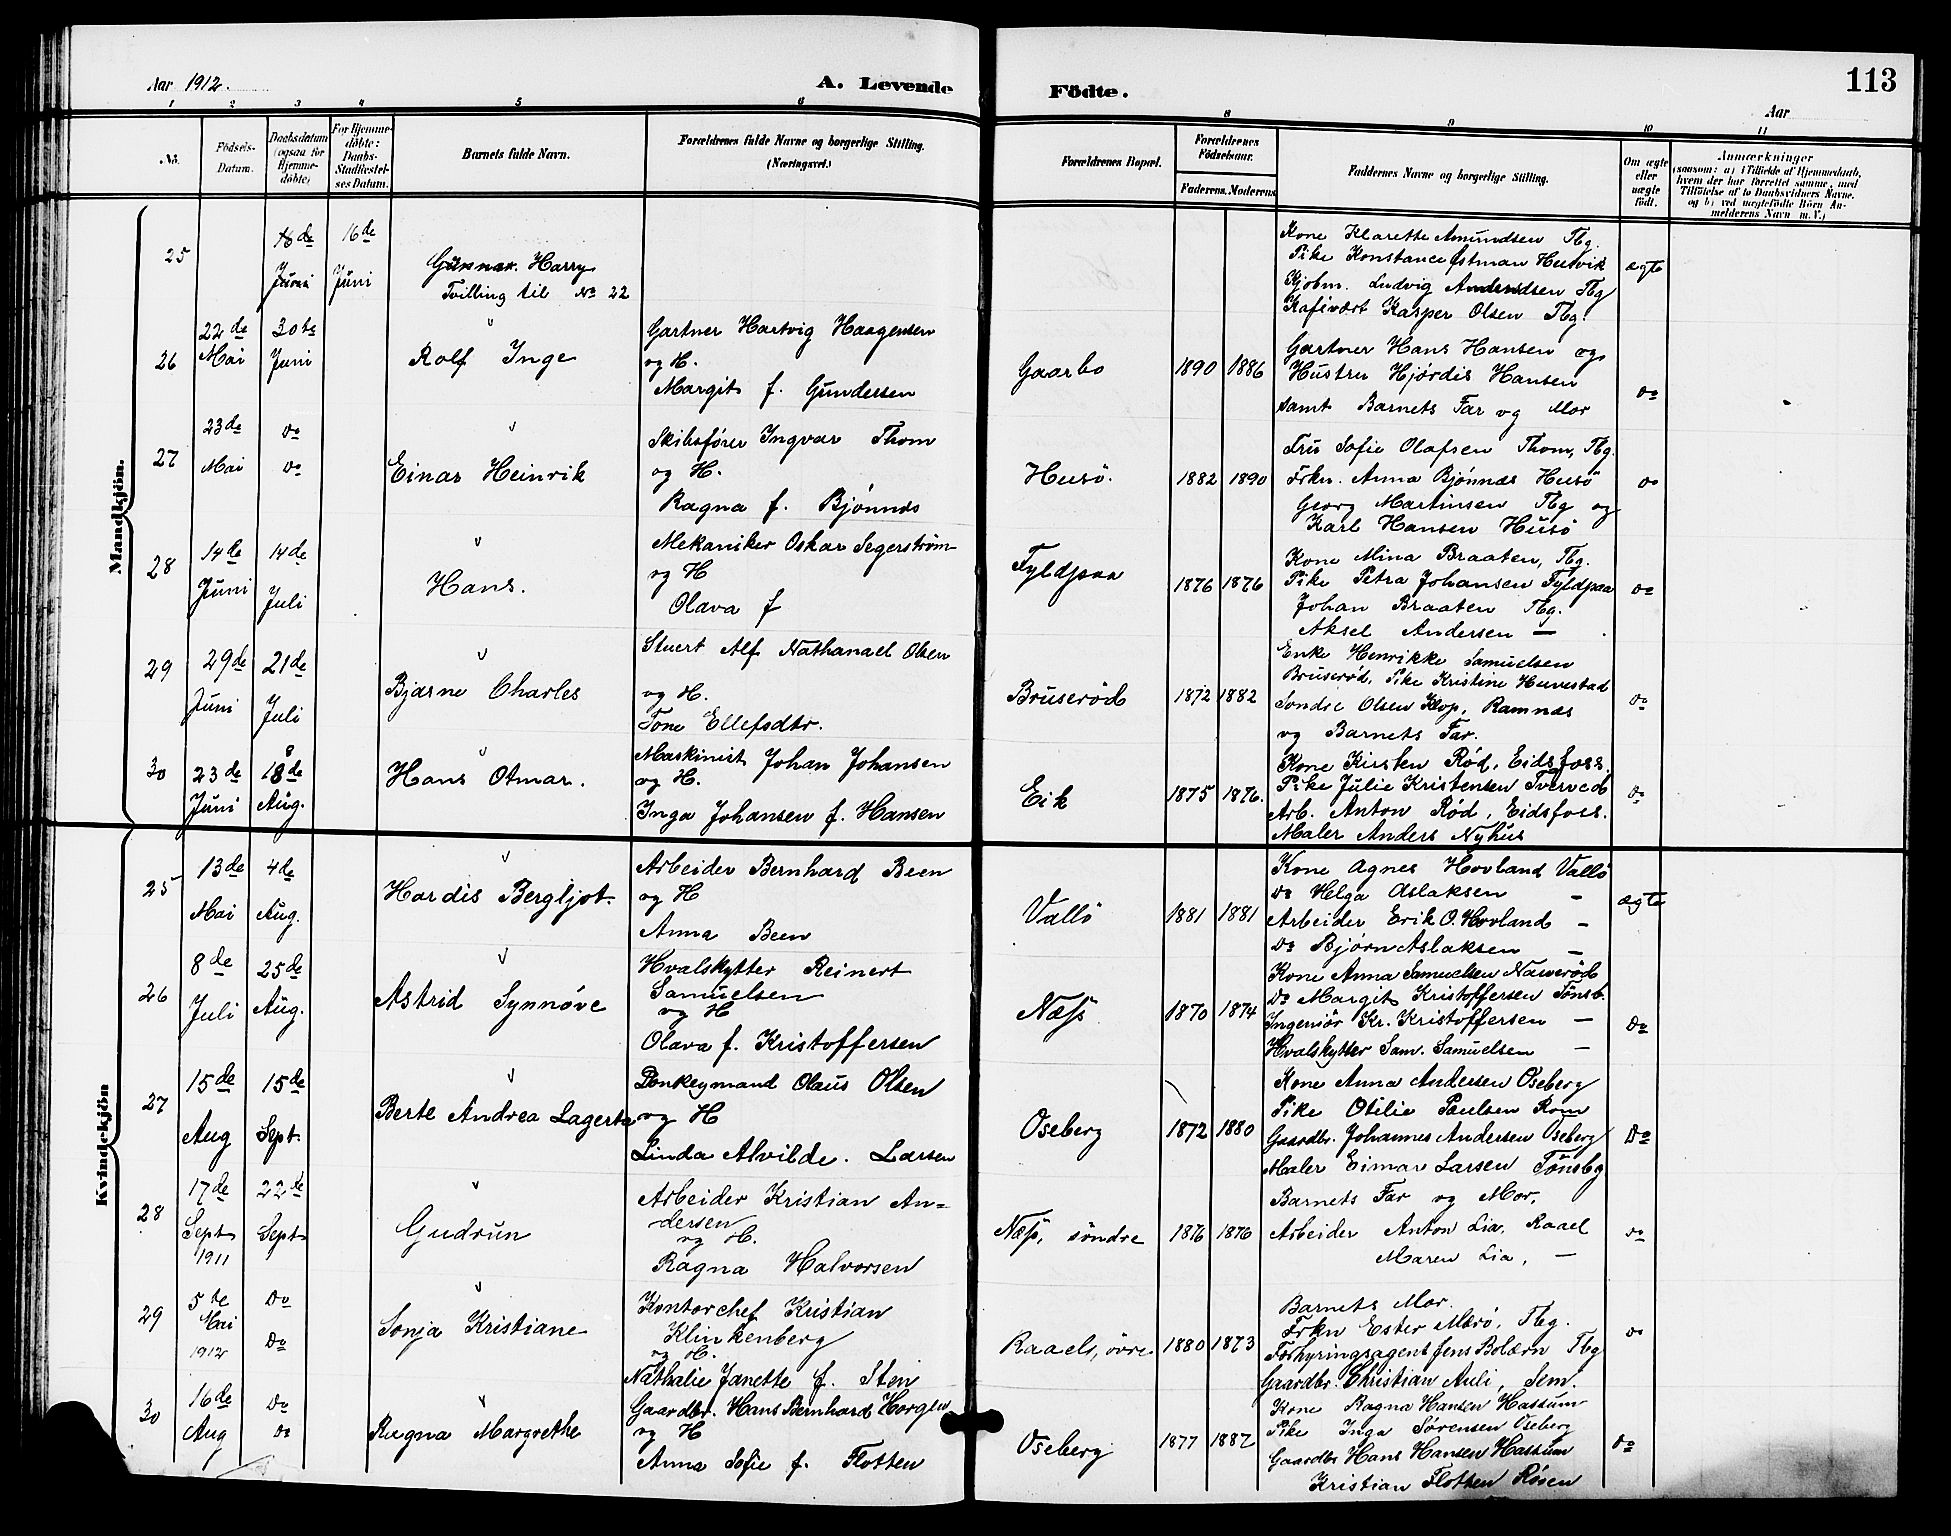 Aar 1912.
A. Levende Födte.
113
Aar
1 2 3 4 5 6 8 9 10 11
No.
Födsels-Datum.
Daabsdatum (ogsaa for Hjemmedöbte)
For Hjemmedöbte: Daabs-Stadfæstelses Datum.
Barnets fulde Navn.
Forældrenes fulde Navne og borgerlige Stilling. (Næringsvei.)
Forældrenes Bopæl.
Forældrenes Födselsaar.
Faderens. Moderens.
Faddernes Navne og borgerlige Stilling.
Om ægte eller uægte födt.
Anmærkninger
(saasom: a) i Tilfælde af Hjemmedaab, hvem der har forrettet samme, med Tilföielse af to Daabsvidners Navne, og b) ved uægtefödte Börn Anmelderens Navn m. V.)
Mandkjön.
25
16de Juni
16de Juni
Gunnar Harry
Tvilling til No 22
Kone Klarette Amundsen Tbg.
Pike Konstance Østman Husvik
Kjøbm. Ludvig Amundsen Tbg
Kafévært Kasper Olsen Tbg.
ægte
26
22de Mai
30te Juni
Rolf Inge
Gartner Hartvig Haagensen
og H.
Margit f. Gundersen
Gaarbo
1890 1886
Gartner Hans Hansen og
Hustru Hjördis Hansen
samt Barnets Far og Mor
do
27
23de Mai
do do
Einar Heinrik
Skibsfører Ingvar Thom
og H.
Ragna f. Bjønnes
Husö.
1882 1890
Fru Sofie Olafsen Thom, Tbg.
Frkn. Anna Bjønnes Husö
Georg Martinsen Tbg og
Karl Hansen Husö
do
28
14de Juni
14de Juli
Hans.
Mekaniker Oskar Segerström
og H
Olava f
Fyldpaa
1876 1876
Kone Mina Braaten, Tbg.
Pike Petra Johansen Fyldpaa
Johan Braaten Tbg.
Aksel Andersen —
do
29
29de Juni
21de Juli
Bjarne Charles
Stuert Alf Nathanael Olsen
og H.
Tone Ellefsdtr.
Bruserød
1872 1882
Enke Henrikke Samuelsen
Bruserød, Pike Kristine Huvestad
Sondre Olsen Klop, Ramnes
og Barnets Far.
do
30
23de Juni
18de Aug.
Hans Otmar.
Maskinist Johan Johansen
og H.
Inga Johansen f. Hansen
Eik
1875 1876.
Kone Kirsten Rød, Eidsfoss.
Pike Julie Kristensen Tverved
Arb. Anton Rød, Eidsfoss.
Maler Anders Nyhus
do
Kvindekjön
25
13de Mai
4de Aug.
Hardis Bergljot.
Arbeider Bernhard Been
og H
Anna Been
Vallö
1881 1881
Kone Agnes Hovland Vallö
do Helga Aslaksen —
Arbeider Erik O. Hovland —
do Bjørn Aslaksen —
ægte
26
8de Juli
25de Aug.
Astrid Synnöve
Hvalskytter Reinert
Samuelsen
og H
Olava f. Kristoffersen
Næss
1870 1874
Kone Anna Samuelsen Nauerød
do Margit Kristoffersen Tönsb.
Ingeniör Kr. Kristoffersen —
Hvalskytter Sam. Samuelsen —
do
27
15de Aug
15de Sept.
Berte Andrea Lagerta
Donkeymand Olaus Olsen
og H
Linda Alvilde. Larsen
Oseberg
1872 1880
Kone Anna Andersen Oseberg
Pike Otilie Paulsen Rom
Gaardbr. Johannes Andersen Oseberg
Maler Eimar Larsen Tönsbg
do
28
17de Sept 1911
22de Sept
Gudrun
Arbeider Kristian An=
dersen
og H.
Ragna Halvorsen
Næss, söndre
1876 1876
Barnets Far og Mor,
Arbeider Anton Lia, Raael
Maren Lia, —
do
29
5te Mai 1912
do do
Sonja Kristiane
Kontorchef Kristian
Klinkenberg
og H.
Nathalie Janette f. Sten
Raael, övre
1880 1873
Barnets Mor.
Frkn Ester Merö, Tbg.
Forhyringsagent Jens Bolærn Tbg
Gaardbr. Christian Auli, Sem.
do
30
16de Aug
do do
Ragna Margrethe
Gaardbr. Hans Bernhard Horgen
og H
Anna Sofie f. Flotten
Oseberg
1877 1887
Kone Ragna Hansen Hassum
Pike Inga Sørensen Oseberg
Gaardbr Hans Hansen Hassum
Kristian Flotten Råsen
do